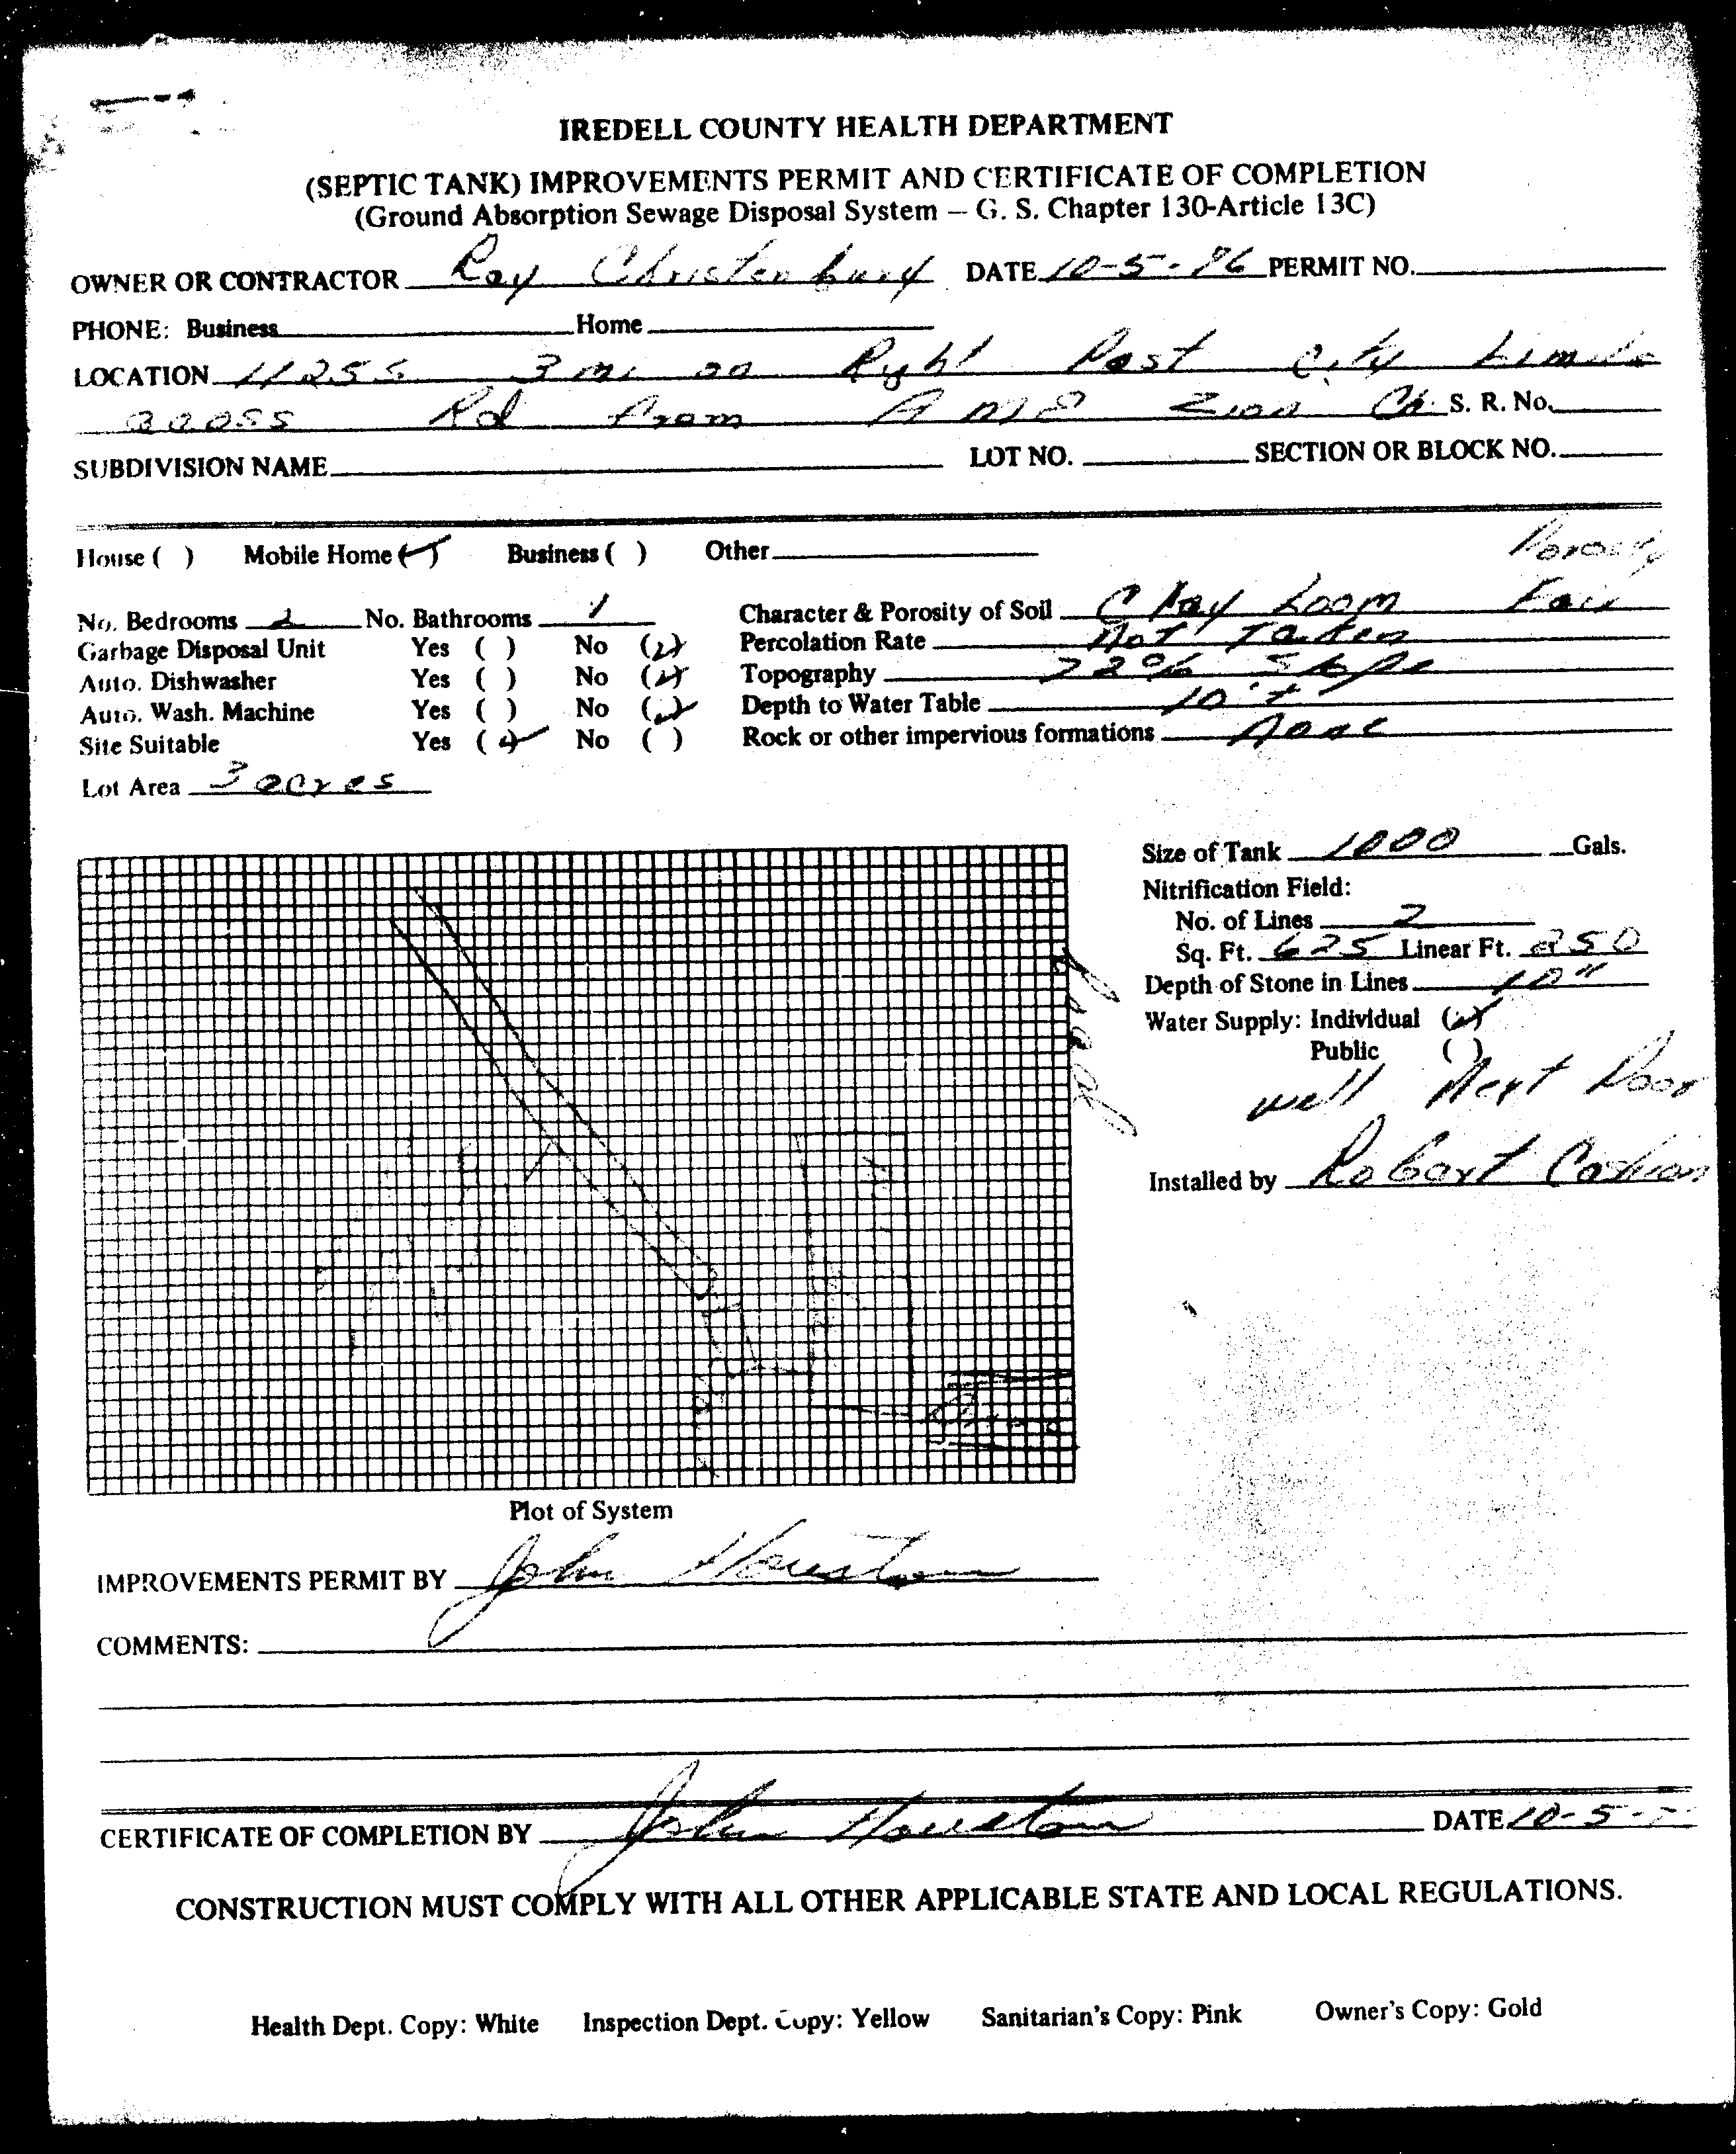 IREDELL COUNTY HEALTH DEPARTMENT
(SEPTIC TANK) IMPROVEMENTS PERMIT AND CERTIFICATE OF COMPLETION
(Ground Absorption Sewage Disposal System – G. S. Chapter 130-Article 13C)
OWNER OR CONTRACTOR Ray Christenbury DATE 10-5-76 PERMIT NO.
PHONE: Business Home
LOCATION 3 mi on Right Past City Limits
Rd from A M E Zion Ch. S. R. No.
SUBDIVISION NAME LOT NO. SECTION OR BLOCK NO.
House ( ) Mobile Home (✓) Business ( ) Other
Porosity
No. Bedrooms 2 No. Bathrooms 1 Character & Porosity of Soil Clay Loom Fair
Garbage Disposal Unit Yes ( ) No (✓) Percolation Rate Not Taken
Auto. Dishwasher Yes ( ) No (✓) Topography 22% Slope
Auto. Wash. Machine Yes ( ) No (✓) Depth to Water Table 10'+
Site Suitable Yes (✓) No ( ) Rock or other impervious formations None
Lot Area 3 acres
Size of Tank 1000 Gals.
Nitrification Field:
No. of Lines 2
Sq. Ft. 625 Linear Ft. 250
Depth of Stone in Lines 10"
Water Supply: Individual (✓)
Public ( )
well Next Door
Installed by Robert
Plot of System
IMPROVEMENTS PERMIT BY John Houston
COMMENTS:
CERTIFICATE OF COMPLETION BY John Houston DATE 10-5-
CONSTRUCTION MUST COMPLY WITH ALL OTHER APPLICABLE STATE AND LOCAL REGULATIONS.
Health Dept. Copy: White Inspection Dept. Copy: Yellow Sanitarian's Copy: Pink Owner's Copy: Gold